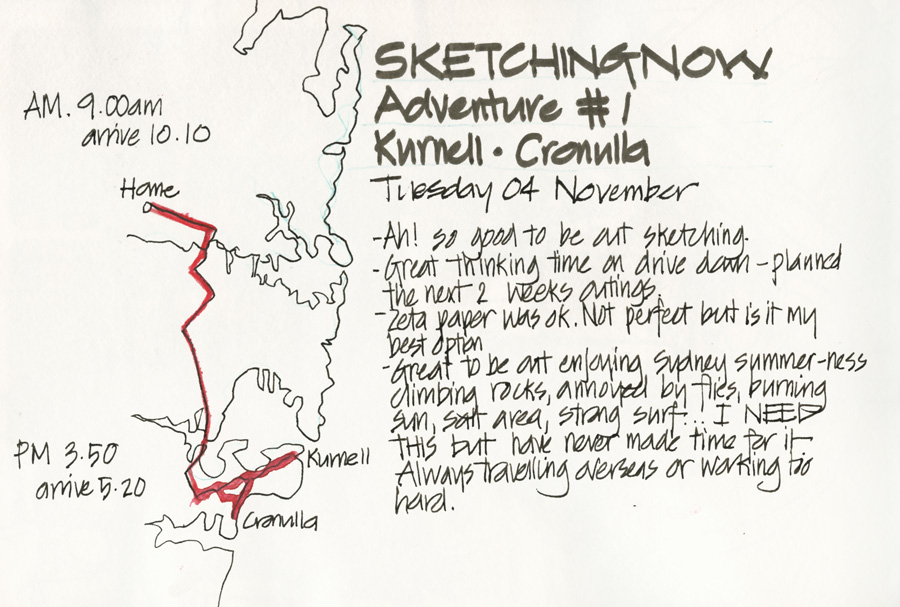 SKETCHINGNOW
Adventure #1
Kurnell · Cronulla
Tuesday 04 November
AM. 9.00am
arrive 10.10
Home
- Ah! so good to be out sketching.
- Great thinking time on drive down - planned
the next 2 weeks outings.
- Zeta paper was ok. Not perfect but is it my
best option
- Great to be out enjoying Sydney summer-ness
climbing rocks, annoyed by flies, burning
sun, salt area, strong surf... I NEED
THIS but have never made time for it
Always travelling overseas or working too
hard.
PM 3.50
arrive 5.20
Kurnell
Cronulla